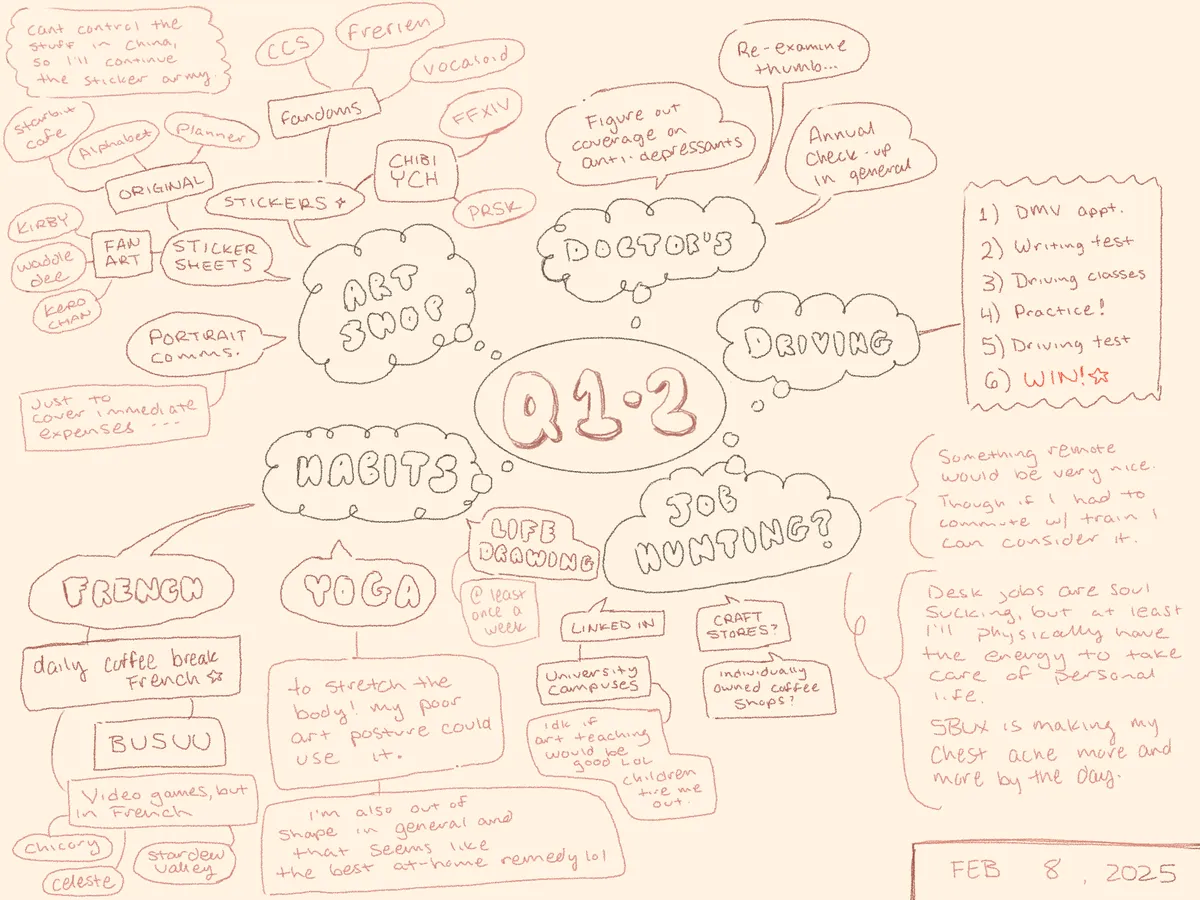 Cant control the
stuff in China,
so I'll continue
the sticker army.
CCS
Frerien
Vocaloid
Fandoms
FFXIV
CHIBI
YCH
PRSK
STICKERS
starbit
cafe
Alphabet
Planner
ORIGINAL
KIRBY
waddle
dee
KERO
CHAN
FAN
ART
STICKER
SHEETS
ART
SHOP
PORTRAIT
comms.
Just to
cover immediate
expenses ---
Re-examine
thumb...
Figure out
coverage on
anti-depressants
Annual
check-up
in general
DOCTOR'S
DRIVING
1) DMV appt.
2) Writing test
3) Driving classes
4) Practice!
5) Driving test
6) WIN!☆
Q1·2
HABITS
FRENCH
daily coffee break
French ☆
BUSUU
Video games, but
in French
chicory
celeste
stardew
valley
YOGA
to stretch the
body! my poor
art posture could
use it.
I'm also out of
shape in general and
that seems like
the best at-home remedy lol
LIFE
DRAWING
@ least
once a
week
JOB
HUNTING?
LINKED IN
University
campuses
idk if
art teaching
would be
good LOL
children
tire me
out.
CRAFT
STORES?
individually
owned coffee
shops?
Something remote
would be very nice.
Though if I had to
commute w/ train I
can consider it.
Desk jobs are soul
sucking, but at least
I'll physically have
the energy to take
care of personal
life.
SBUX is making my
chest ache more and
more by the day.
FEB 8, 2025